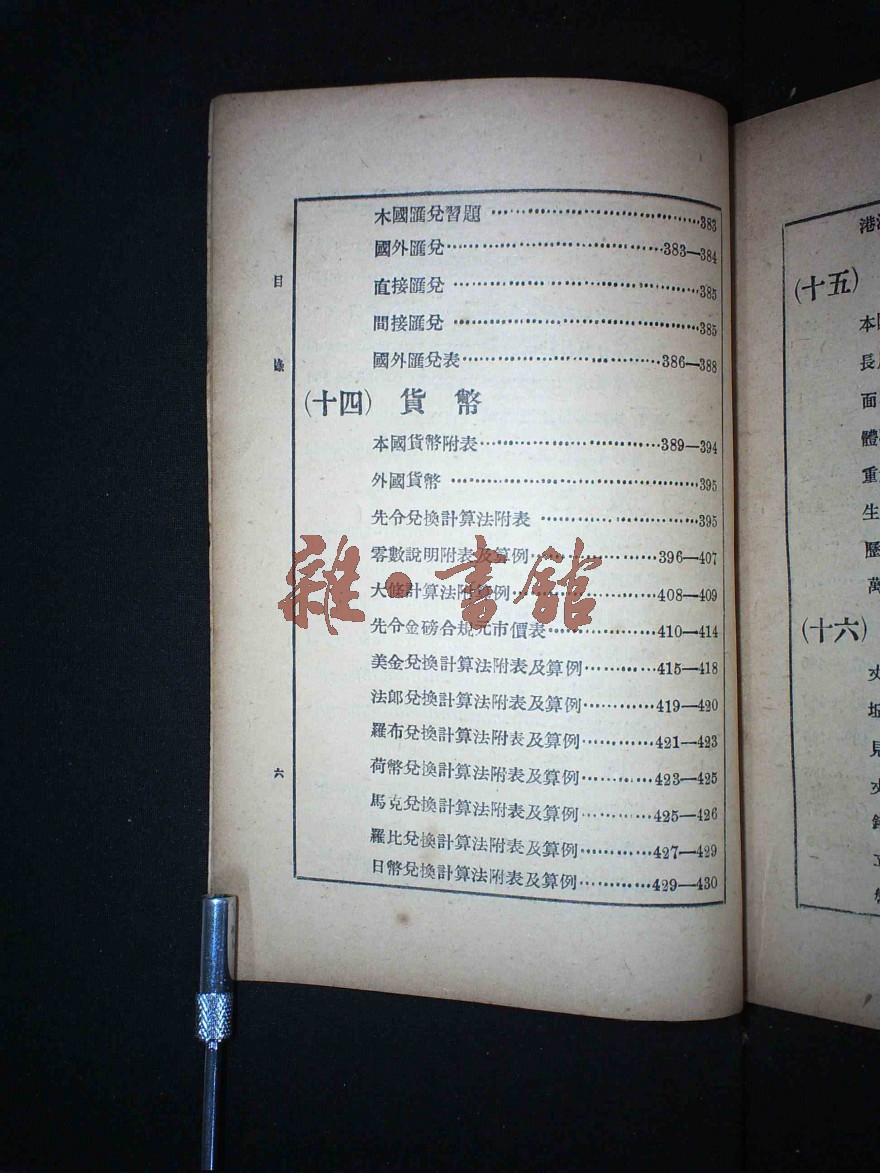 木國匯兌習題 ……………………………383
國外匯兌……………………………383—384
直接匯兌 ……………………………385
間接匯兌 ……………………………385
國外匯兌表…………………………386—388
(十四) 貨 幣
本國貨幣附表………………………389—394
外國貨幣 ……………………………395
先令兌換計算法附表 …………………395
零數說明附表及算例………………396—407
大條計算法附算例…………………408—409
先令金磅合規元市價表……………410—414
美金兌換計算法附表及算例…………415—418
法郎兌換計算法附表及算例…………419—420
羅布兌換計算法附表及算例…………421—423
荷幣兌換計算法附表及算例…………423—425
馬克兌換計算法附表及算例…………425—426
羅比兌換計算法附表及算例…………427—429
日幣兌換計算法附表及算例…………429—430
目
錄
六
雜·書館
港
(十五)
本
長
面
體
重
生
歷
萬
(十六)
見